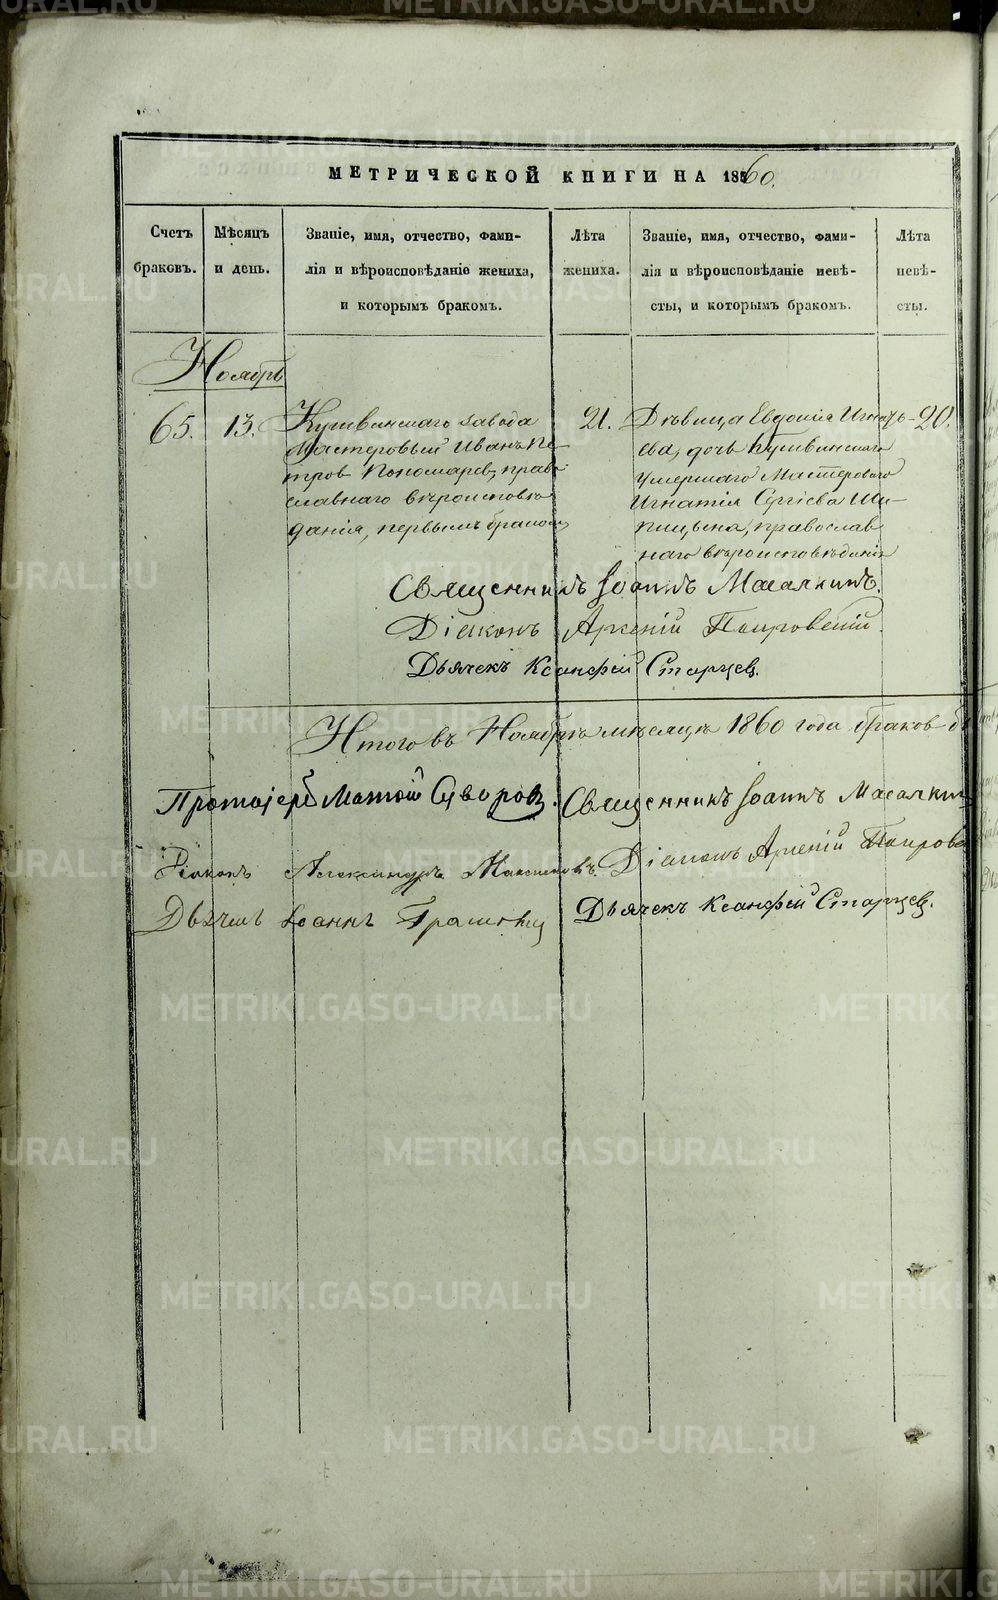 МЕТРИЧЕСКОЙ КНИГИ НА 1860.
Счетъ браковъ.
Мѣсяцъ и день.
Званіе, имя, отчество, фами-
лія и вѣроисповѣданіе жениха,
и которымъ бракомъ.
Лѣта жениха.
Званіе, имя, отчество, фами-
лія и вѣроисповѣданіе невѣ-
сты, и которымъ бракомъ.
Лѣта невѣ-
сты.
Ноябрь
65. 13.
Кушвинскаго завода
Мастеровый Иванъ Пе-
тровъ Пономаревъ, право-
славнаго вѣроисповѣ-
данія, первымъ бракомъ
21.
Дѣвица Евдокія Игнать-
ева, дочь Кушвинскаго
умершаго Мастероваго
Игнатія Сергіева Ши-
пицына, православ
наго вѣроисповѣданія
20.
Священникъ Іоаннъ Масалкинъ.
Діаконъ Арсеній Покровскій.
Дьячекъ Ксанфій Старцев.
Итого въ Ноябрѣ мѣсяцѣ 1860 года браков
Протоіерей Матѳій Суворовъ.
Священникъ Іоаннъ Масалкин
Діаконъ Александръ Максимовъ
Діаконъ Арсеній Покровс
Дьячекъ Іоаннъ
Дьячекъ Ксанфій Старцев.
METRIKI.GASO-URAL.RU